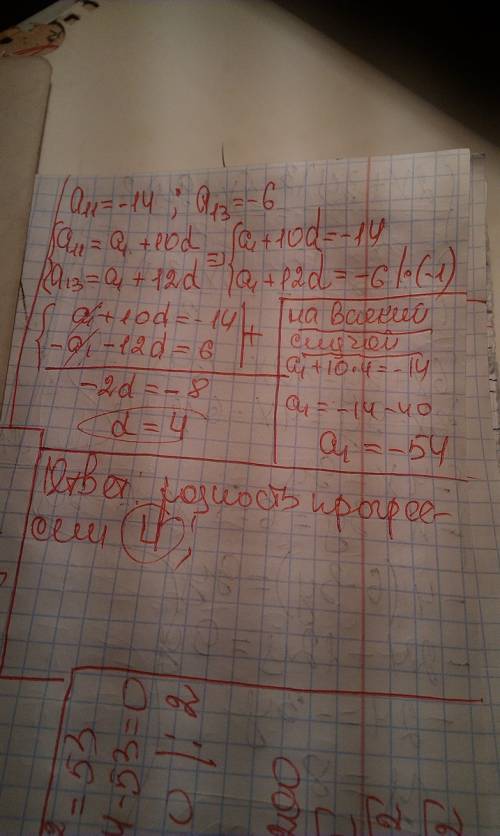 a₁₁ = -14 ; a₁₃ = -6
{a₁₁ = a₁ + 10d ⇒ {a₁ + 10d = -14
{a₁₃ = a₁ + 12d {a₁ + 12d = -6 |·(-1)
{a₁ + 10d = -14 | +
{-a₁ - 12d = 6
-2d = -8
d = 4
на всякий
случай
a₁ + 10·4 = -14
a₁ = -14 - 40
a₁ = -54
Ответ: разность прогрес-
сии 4;
= 53
4 - 53 = 0
0 |: 2
200
2
2